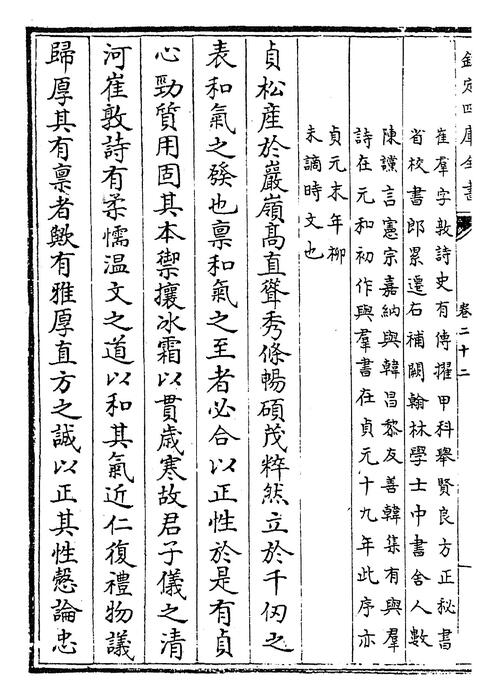 欽定四庫全書
卷二十二
崔羣字敦詩史有傳擢甲科舉賢良方正秘書
省校書郎累遷右補闕翰林學士中書舍人數
陳讜言憲宗嘉納與韓昌黎友善韓集有與羣
詩在元和初作與羣書在貞元十九年此序亦
貞元末年柳
未謫時文也
貞松産於巖嶺髙直聳秀條暢碩茂粹然立於千仭之
表和氣之發也禀和氣之至者必合以正性於是有貞
心勁質用固其本禦攘冰霜以貫歳寒故君子儀之清
河崔敦詩有柔懦温文之道以和其氣近仁復禮物議
歸厚其有禀者歟有雅厚直方之誠以正其性愨論忠